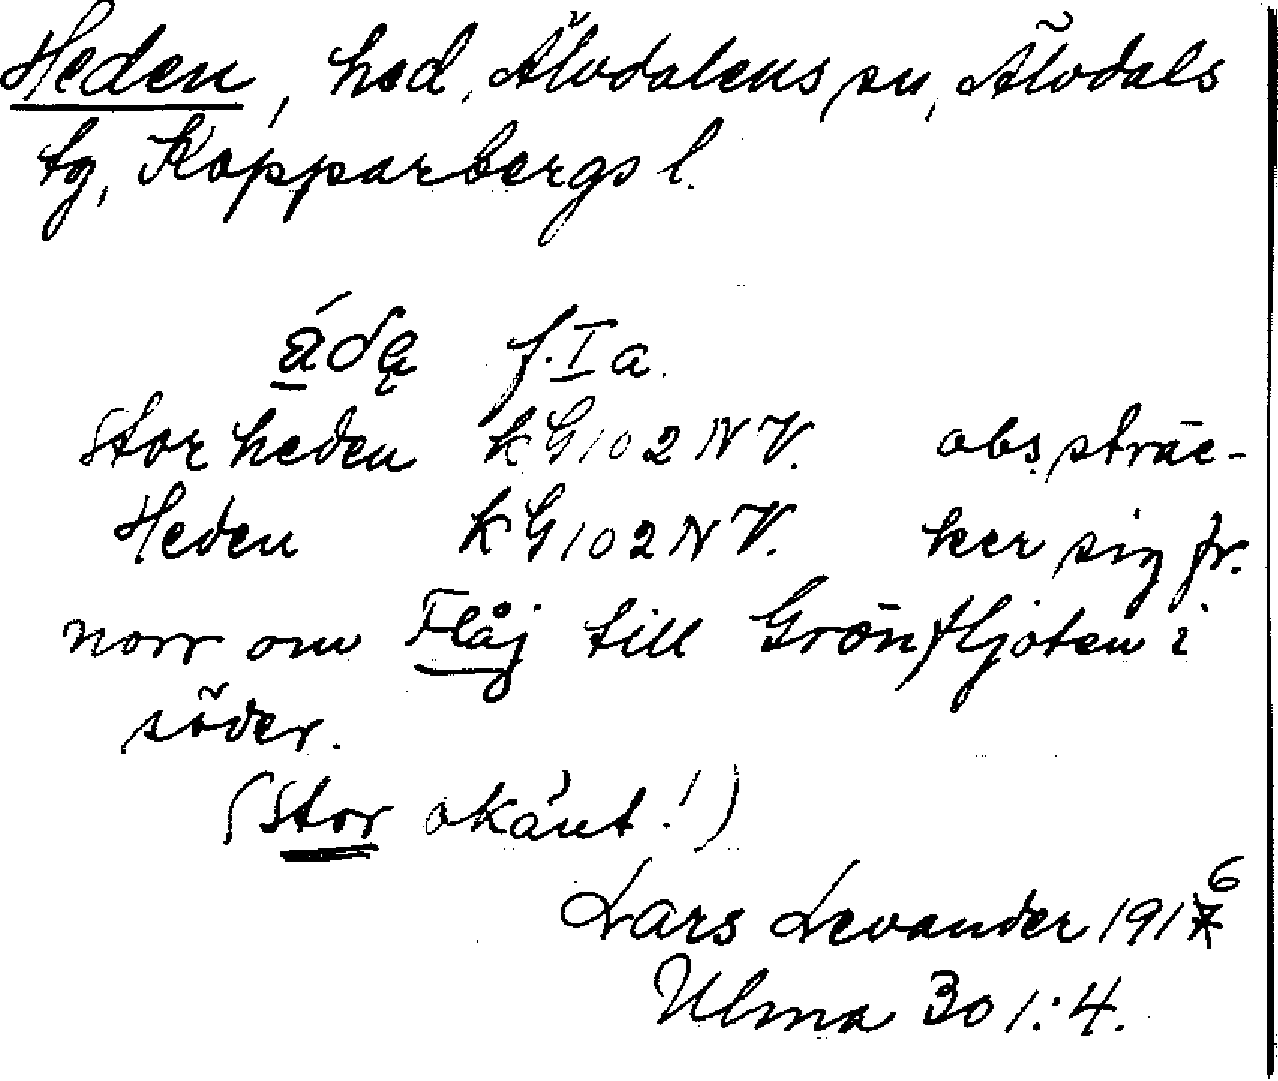 Heden, hed, Älvdalens sn, Älvdals
tg, Kopparbergs l.
f. I a.
Storheden kG102NV. obs. sträc-
Heden kG102NV. ker sig fr.
norr om Flåj till Grönfljoten i
söder.
(Stor okänt!)
Lars Levander 1916
Ulma 301:4.